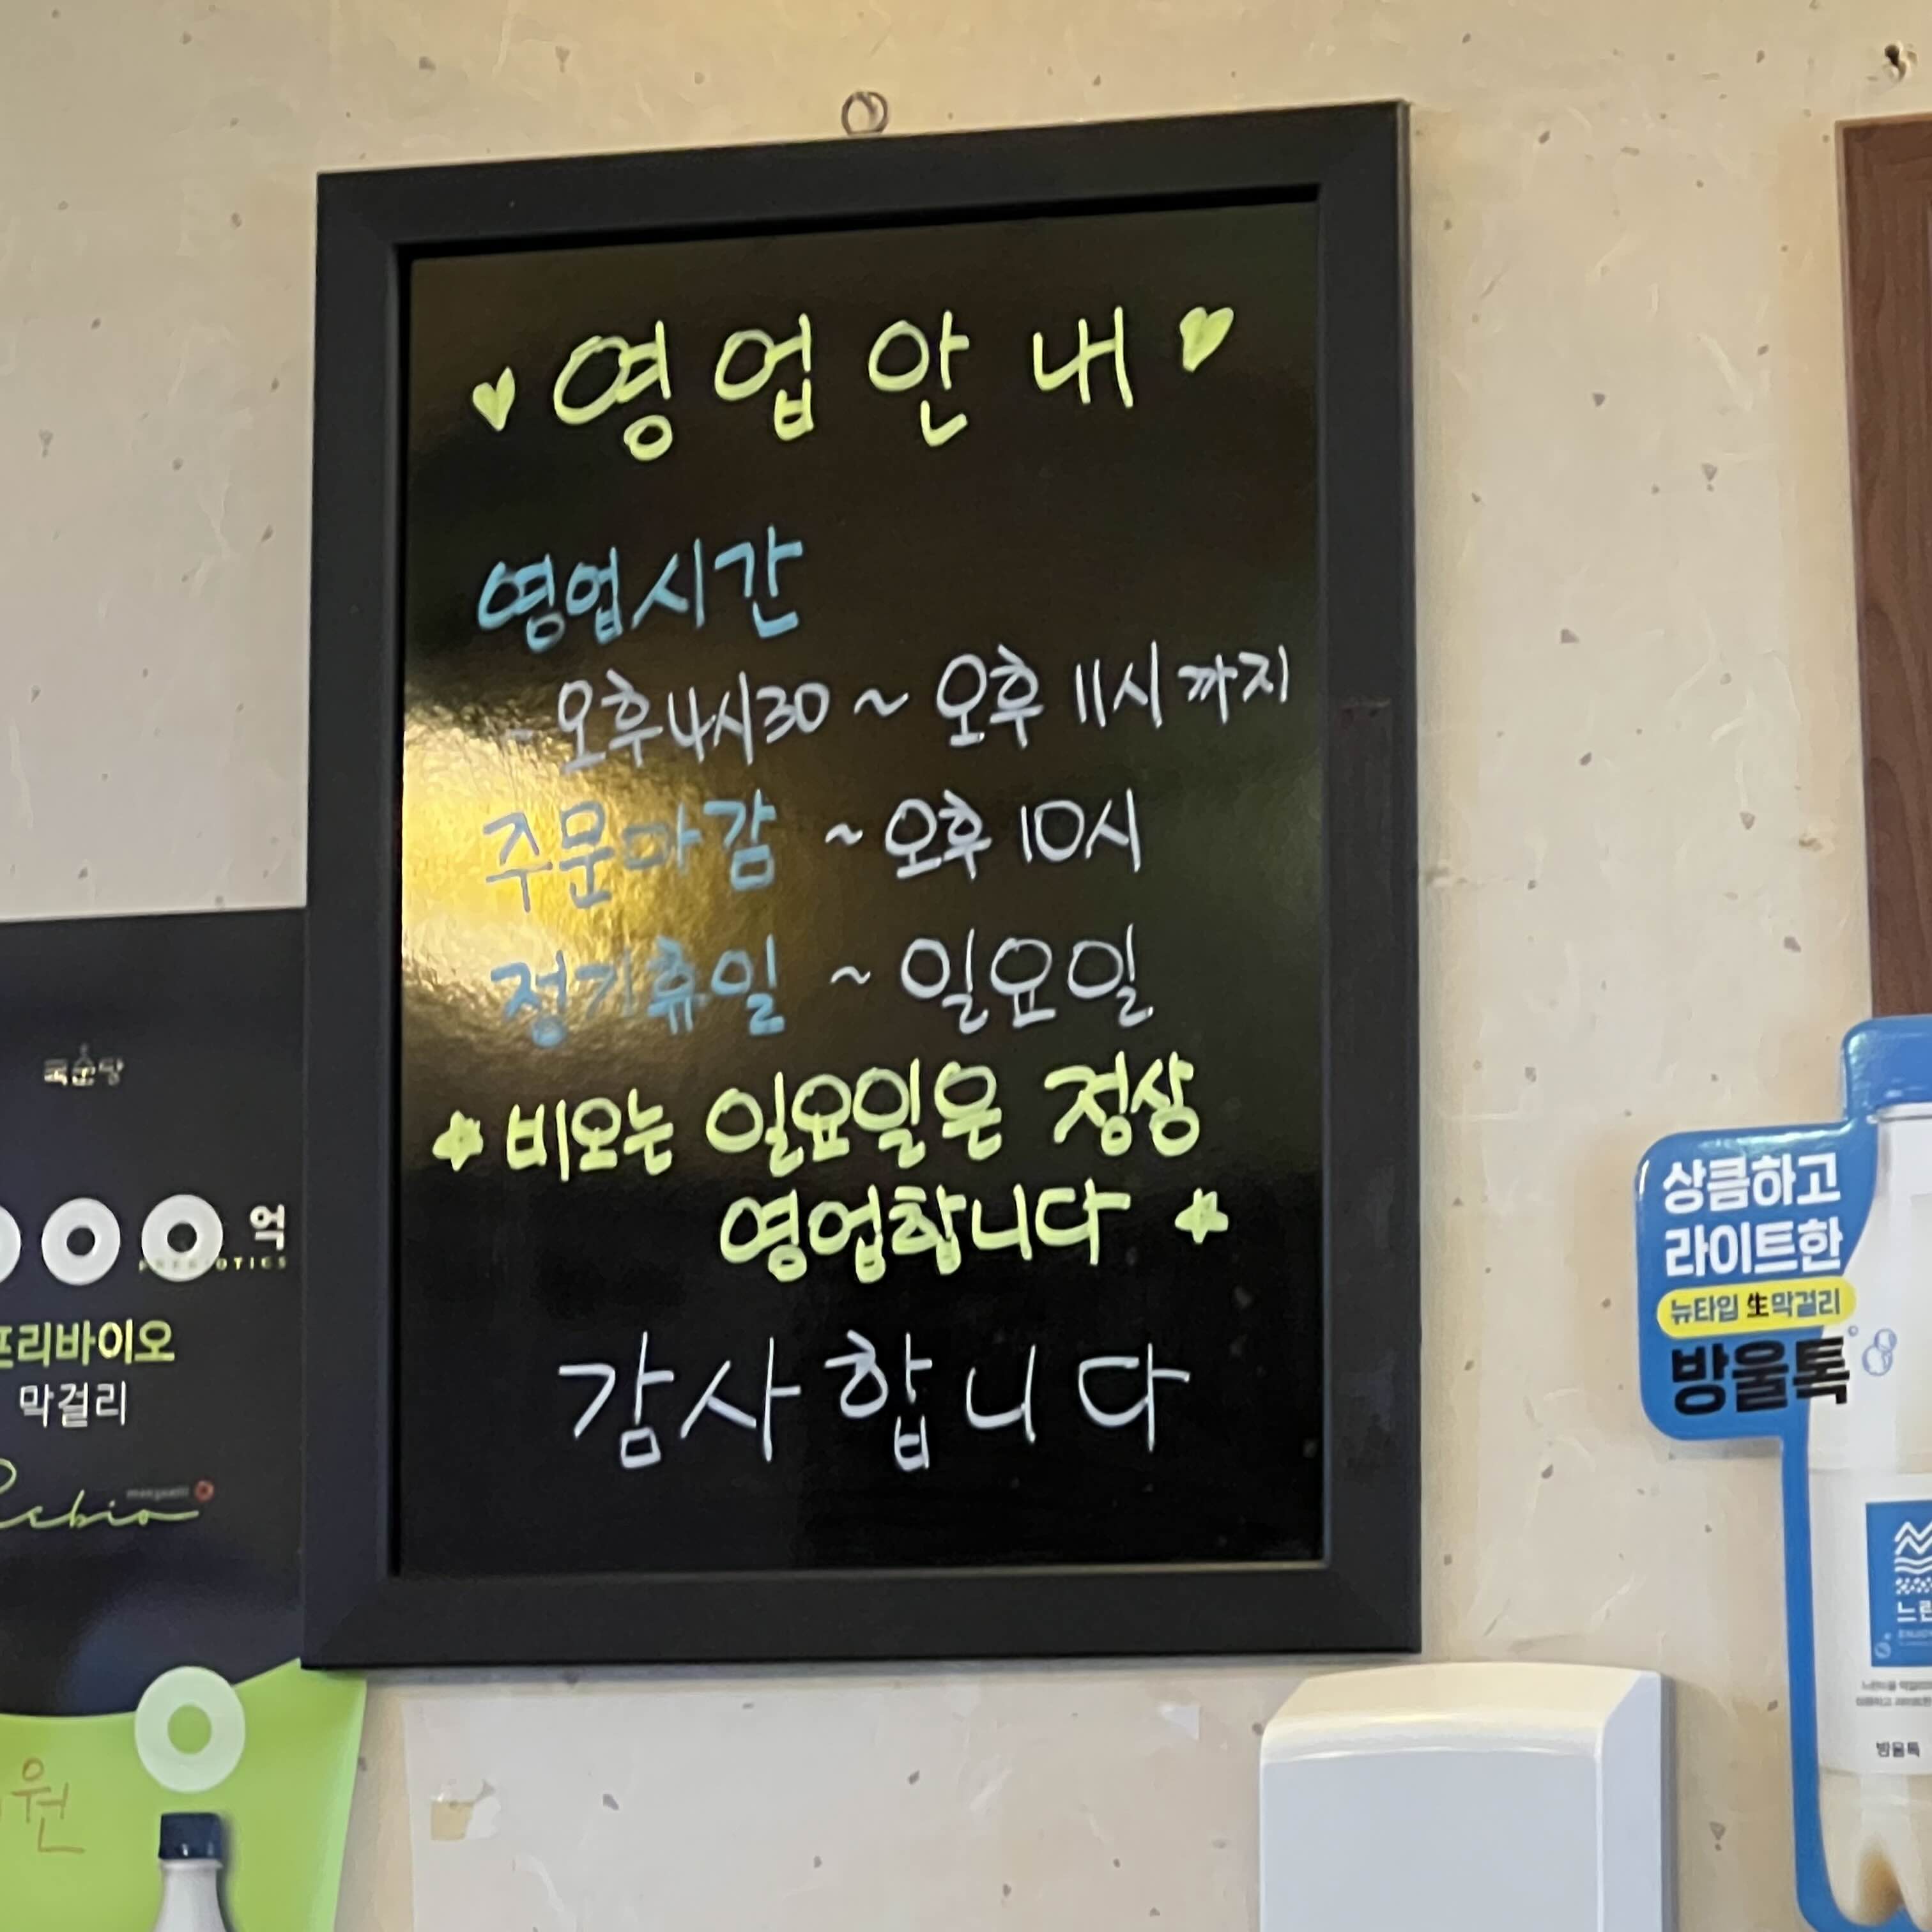 영업안내
영업시간
- 오후4시30 ~ 오후 11시 까지
주문마감 ~ 오후 10시
정기휴일 ~ 일요일
비오는 일요일은 정상
영업합니다
감사합니다
국순당
억
프리바이오
막걸리
원
상큼하고
라이트한
뉴타입 生막걸리
방울톡
방울톡